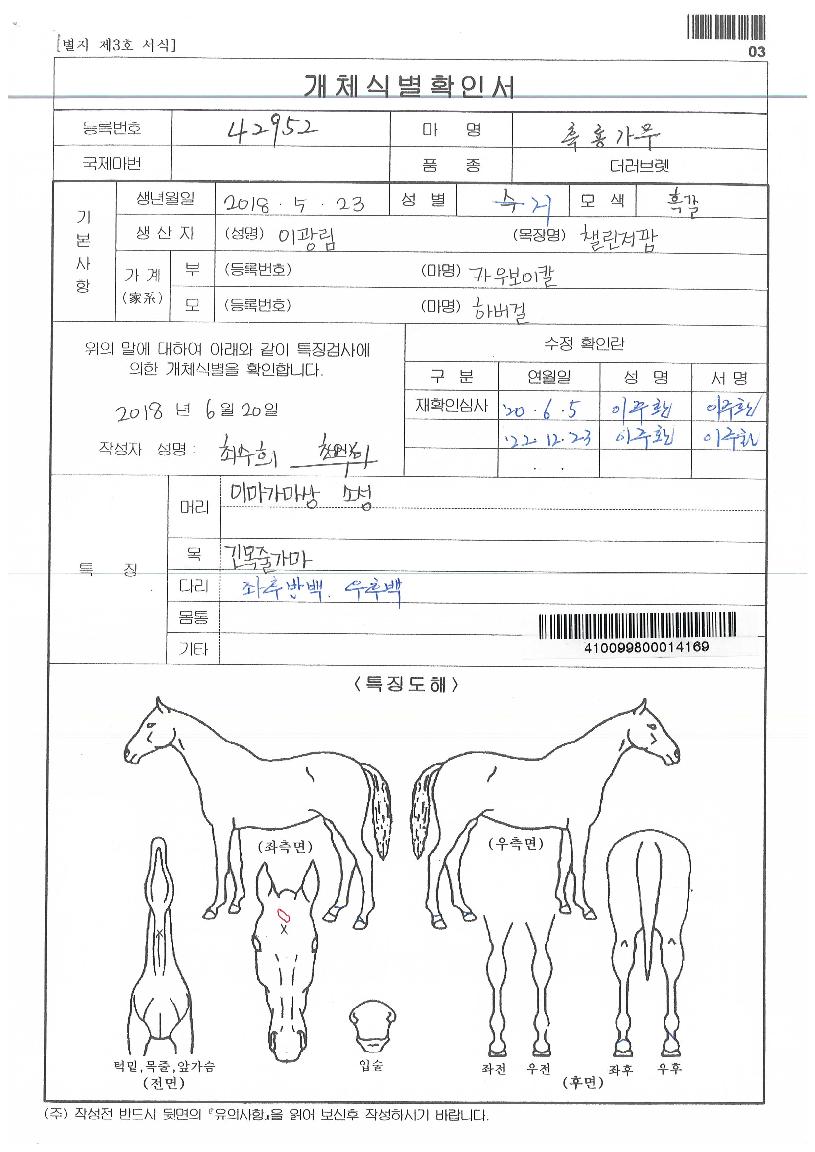 [별지 제3호 서식]
03
개체식별확인서
등록번호 42952 마 명 흑룡가무
국제마번 품 종 더러브렛
기본사항
생년월일 2018 . 5 . 23 성 별 수 거 모 색 흑갈
생 산 자 (성명) 이광림 (목장명) 챌린저팜
가 계 (家系) 부 (등록번호) (마명) 카우보이칼
모 (등록번호) (마명) 하버걸
위의 말에 대하여 아래와 같이 특징검사에
의한 개체식별을 확인합니다.
2018 년 6월 20일
작성자 성명 : 최수희
수정 확인란
구 분 연월일 성 명 서 명
재확인심사 '20 . 6 . 5 이주환 이주환
'22 12. 23 이주환 이주환
. .
특 징
머리 이마가마상 소성
목 긴목줄가마
다리 좌후반백. 우후백
몸통
기타
410099800014169
<특징도해>
(좌측면)
(우측면)
턱밑,목줄,앞가슴
(전면)
입술
좌전 우전 좌후 우후
(후면)
(주) 작성전 반드시 뒷면의 『유의사항』을 읽어 보신후 작성하시기 바랍니다.